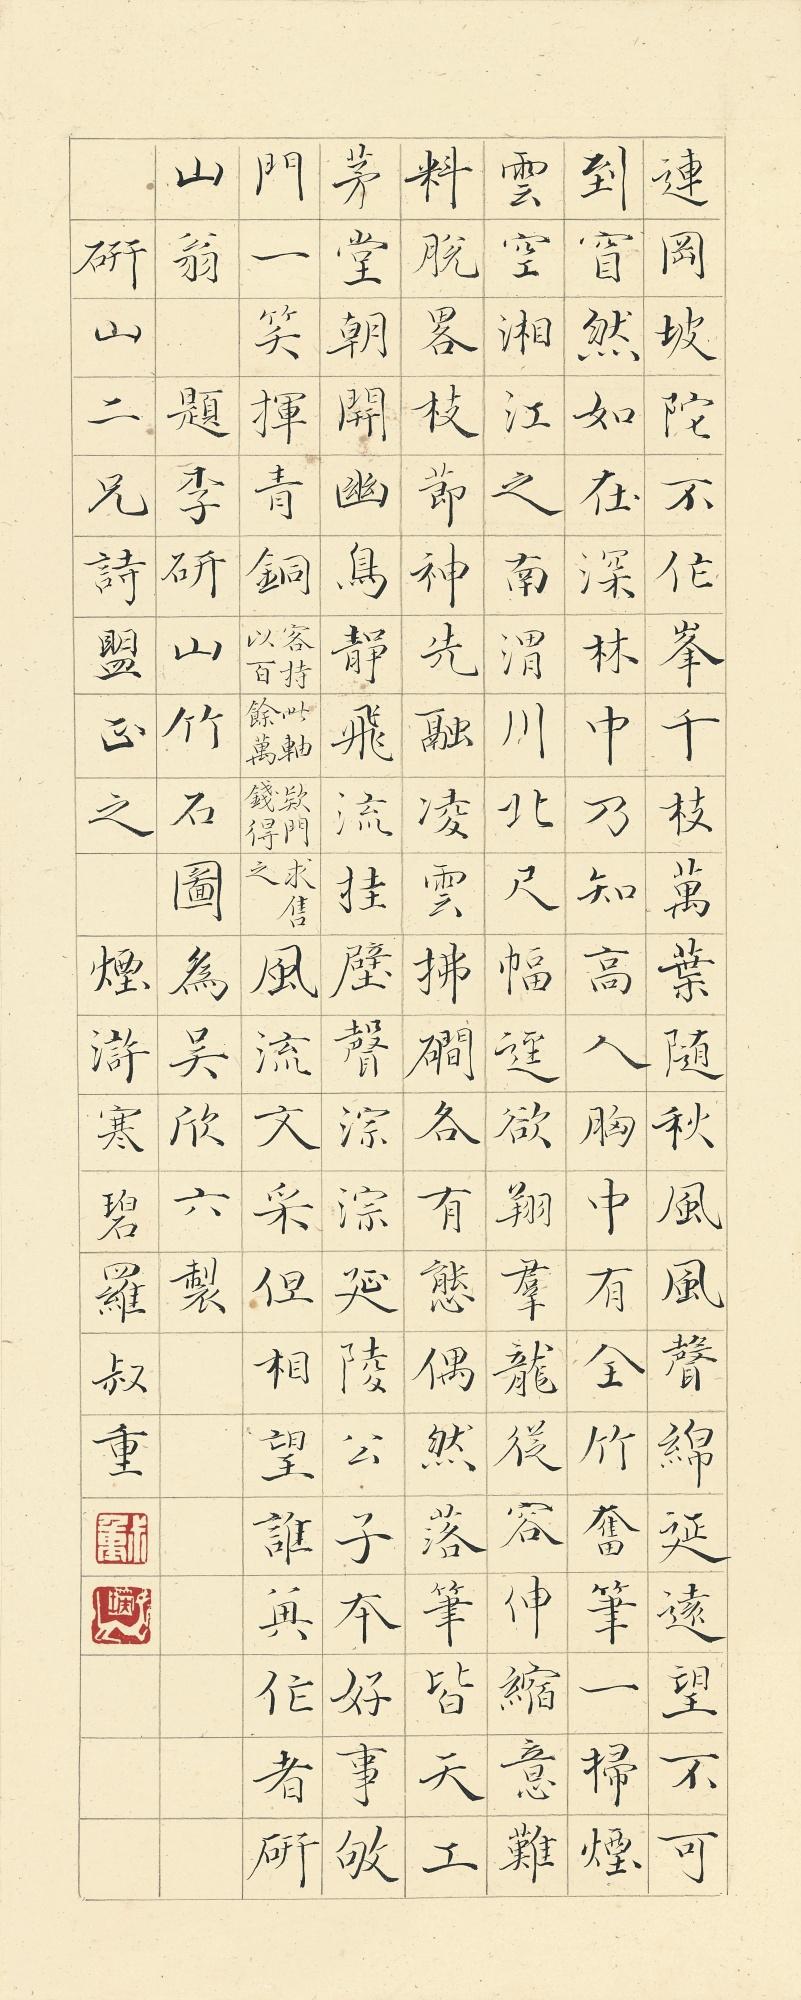 連岡坡陀不作峯千枝萬葉隨秋風風聲綿延遠望不可
到窅然如在深林中乃知高人胸中有全竹奮筆一掃煙
雲空湘江之南渭川北尺幅逕欲翔羣龍從容伸縮意難
料脫畧枝節神先融凌雲拂磵各有態偶然落筆皆天工
茅堂朝開幽鳥靜飛流挂壁聲淙淙延陵公子本好事欬
門一笑揮青銅客持此軸欵門求售以百餘萬錢得之風流文采但相望誰與作者研
山翁 題李研山竹石圖為吴欣六製
研山二兄詩盟正之 煙滸寒碧羅叔重